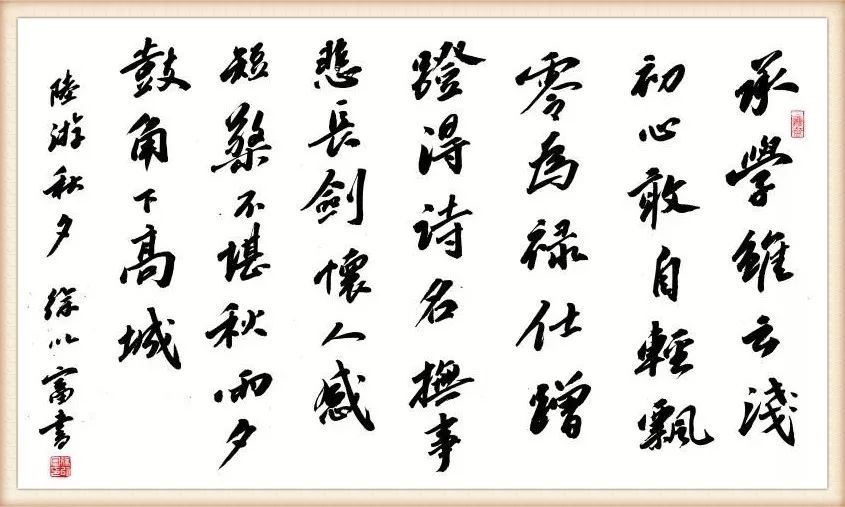 承學雖云淺
初心敢自輕飄
零為禄仕蹭
蹬得詩名撫事
悲長劍懷人感
短檠不堪秋雨夕
鼓角下高城
陸游秋夕 徐以富書